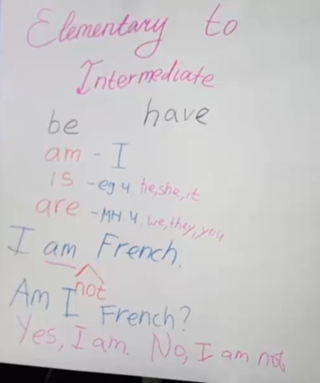 Elementary to
Intermediate
be have
am - I
is - ед ч. he, she, it
are - мн. ч. we, they, you
I am French.
not
Am I French?
Yes, I am. No, I am not.